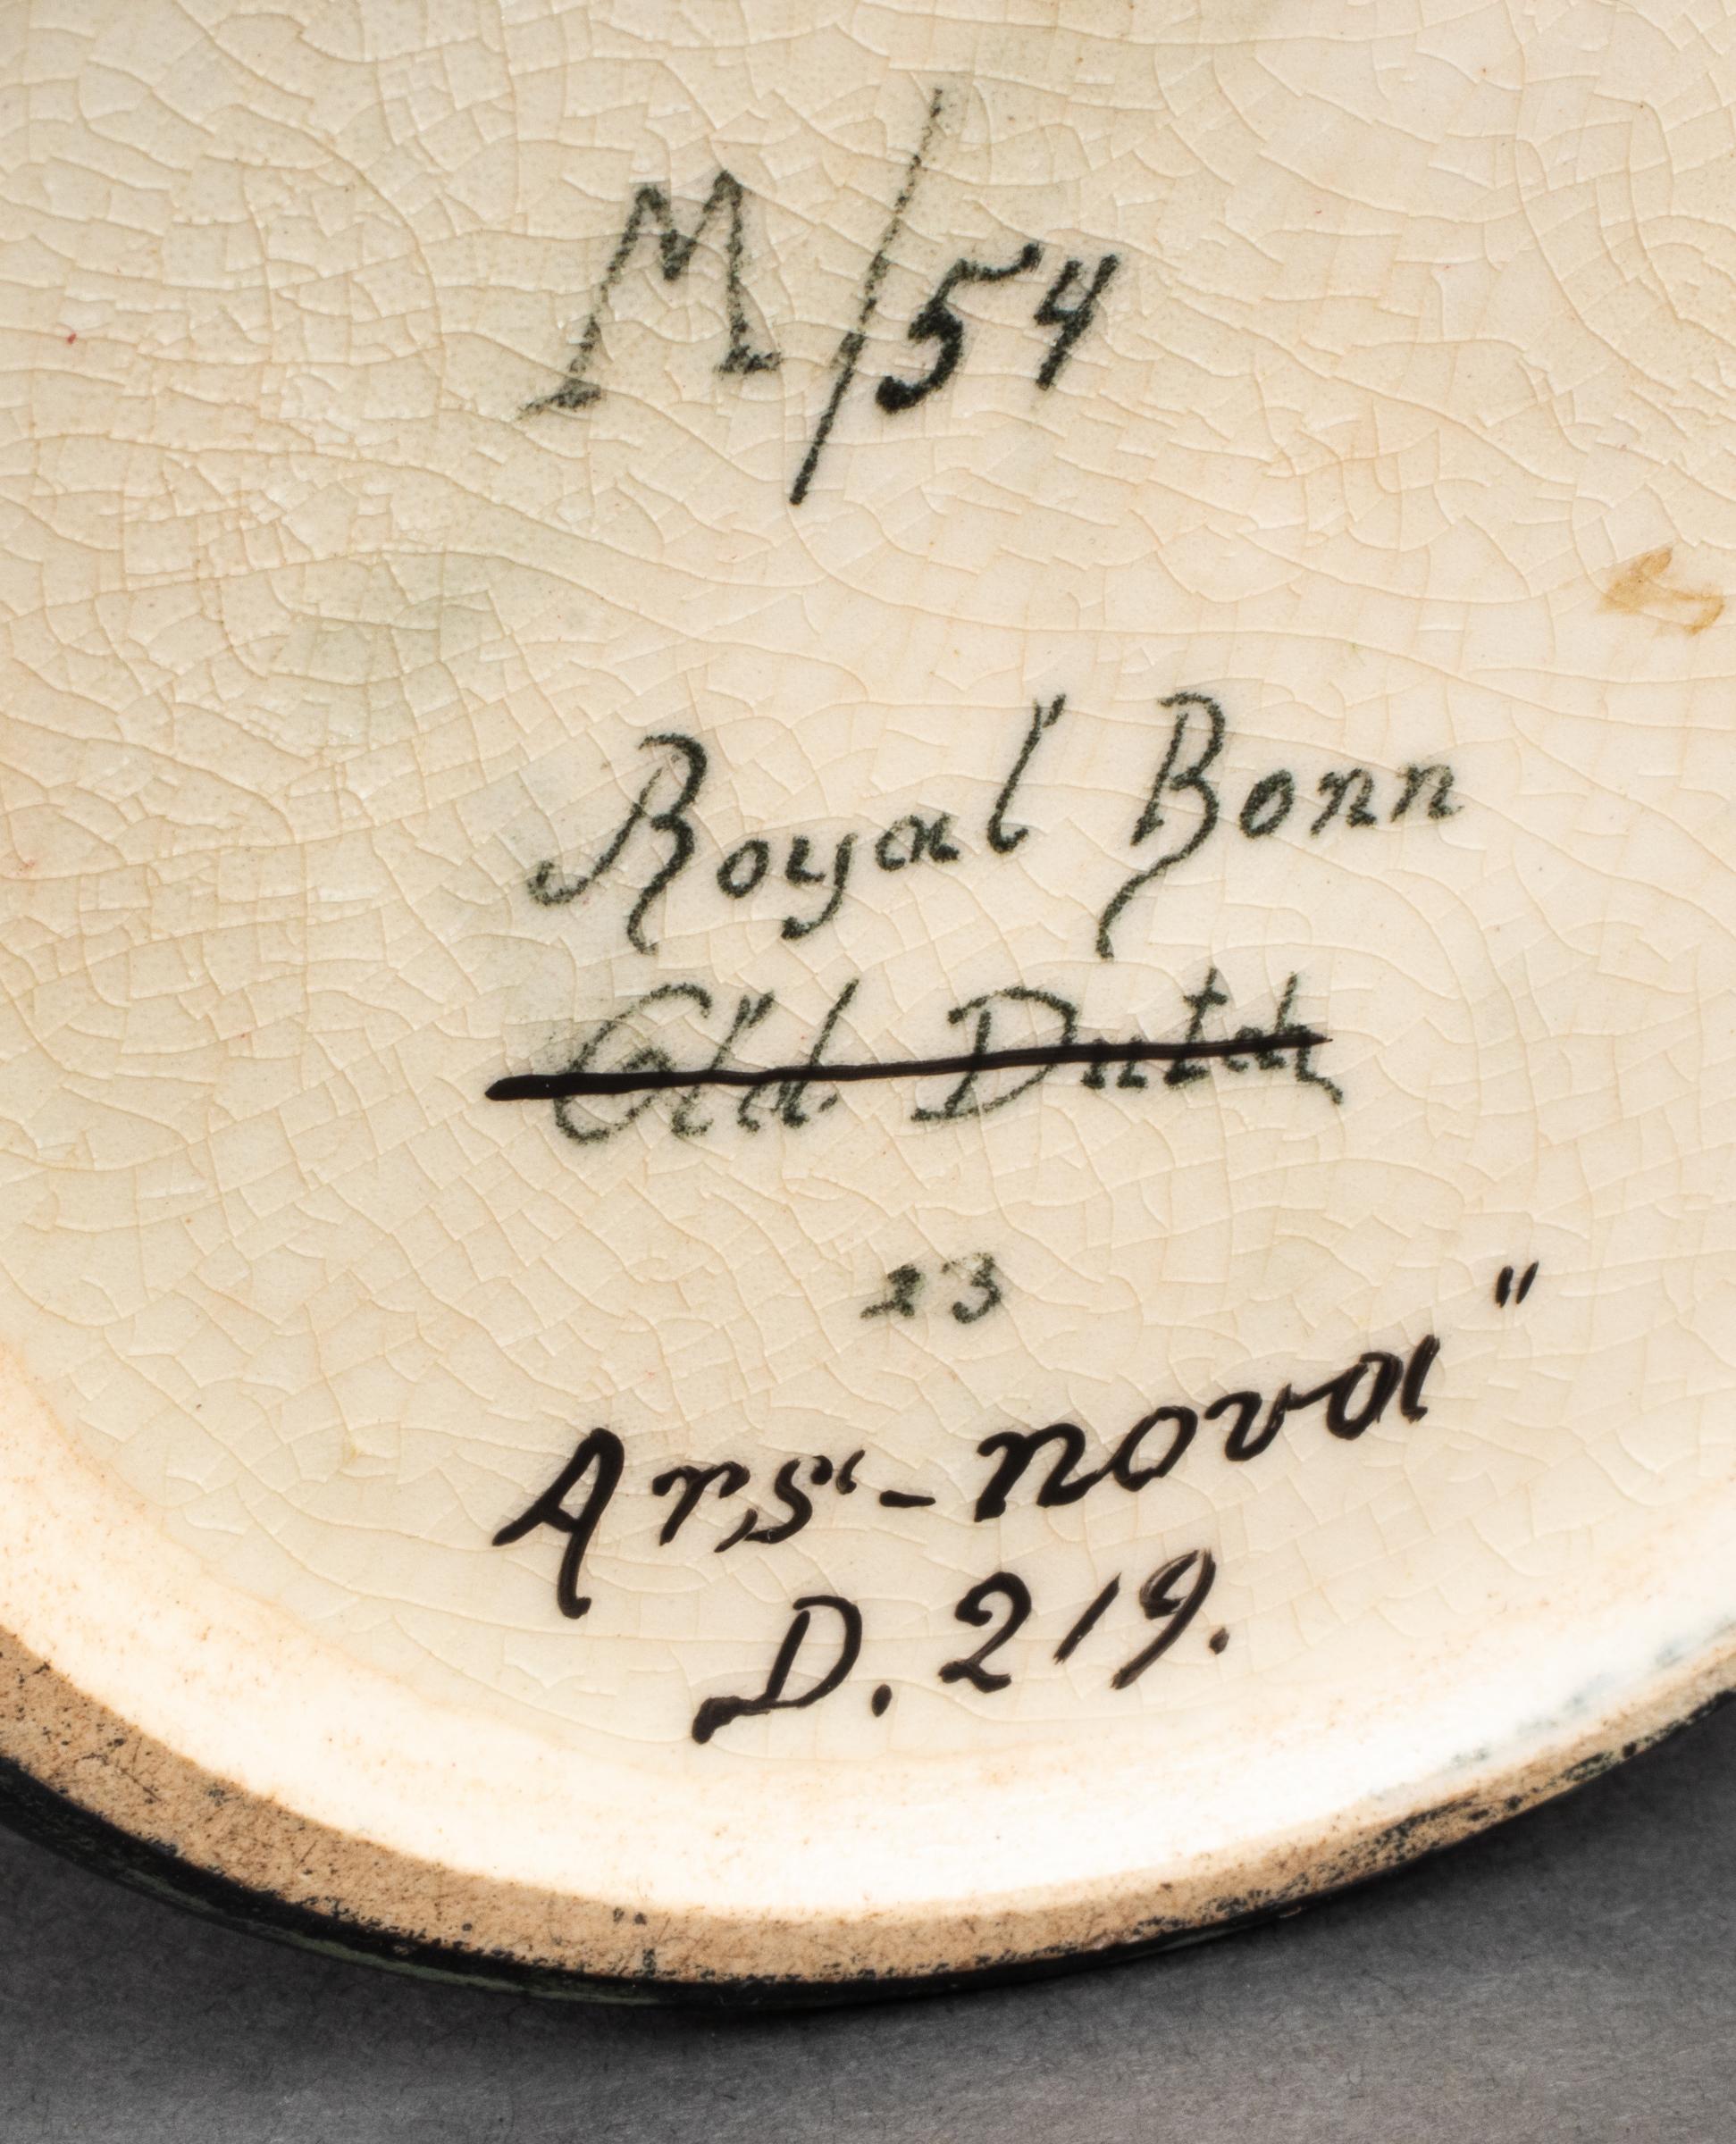 M/54
Royal Bonn
Old Dutch
23
Ars-nova"
D. 219.